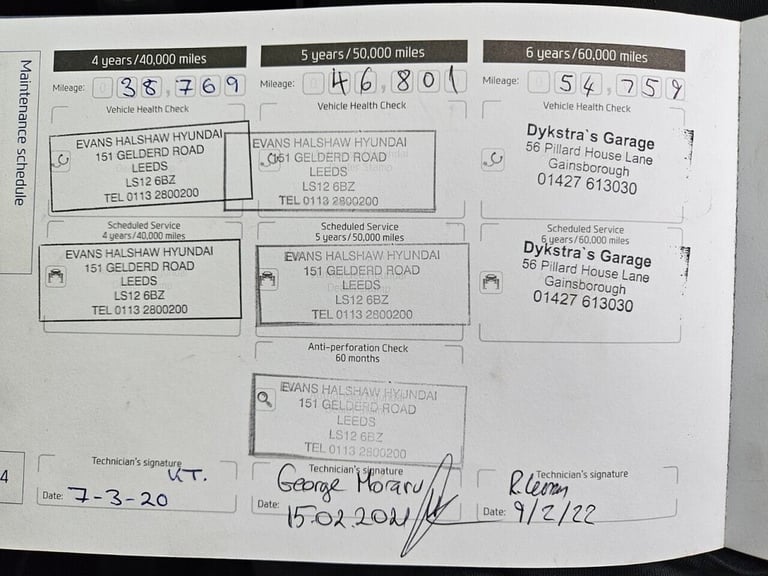 Maintenance schedule
4 years/40,000 miles
Mileage: 38,769
Vehicle Health Check
EVANS HALSHAW HYUNDAI
151 GELDERD ROAD
LEEDS
LS12 6BZ
TEL 0113 2800200
Scheduled Service
4 years/40,000 miles
EVANS HALSHAW HYUNDAI
151 GELDERD ROAD
LEEDS
LS12 6BZ
TEL 0113 2800200
Technician's signature
Date: 7-3-20
4
5 years/50,000 miles
Mileage: 46,801
Vehicle Health Check
EVANS HALSHAW HYUNDAI
151 GELDERD ROAD
LEEDS
LS12 6BZ
TEL 0113 2800200
Scheduled Service
5 years/50,000 miles
EVANS HALSHAW HYUNDAI
151 GELDERD ROAD
LEEDS
LS12 6BZ
TEL 0113 2800200
Anti-perforation Check
60 months
EVANS HALSHAW HYUNDAI
151 GELDERD ROAD
LEEDS
LS12 6BZ
TEL 0113 2800200
Technician's signature
George Moraru
Date: 15.02.2021
6 years/60,000 miles
Mileage: 54,759
Vehicle Health Check
Dykstra`s Garage
56 Pillard House Lane
Gainsborough
01427 613030
Scheduled Service
6 years/60,000 miles
Dykstra`s Garage
56 Pillard House Lane
Gainsborough
01427 613030
Technician's signature
Date: 9/2/22